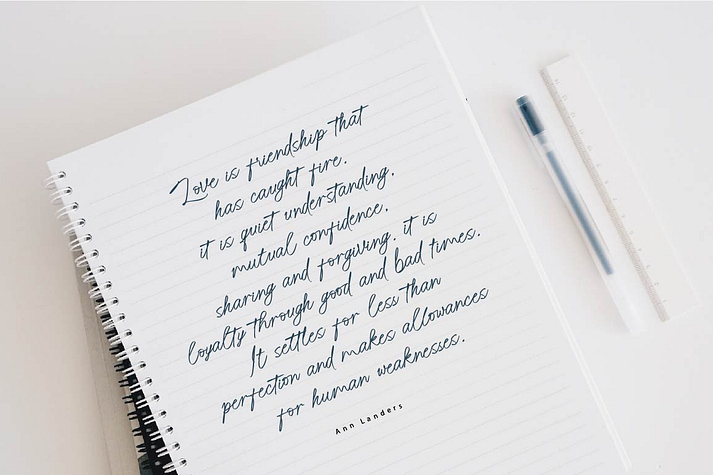 Love is friendship that
has caught fire.
it is quiet understanding,
mutual confidence,
sharing and forgiving. it is
loyalty through good and bad times.
It settles for less than
perfection and makes allowances
for human weaknesses.
Ann Landers